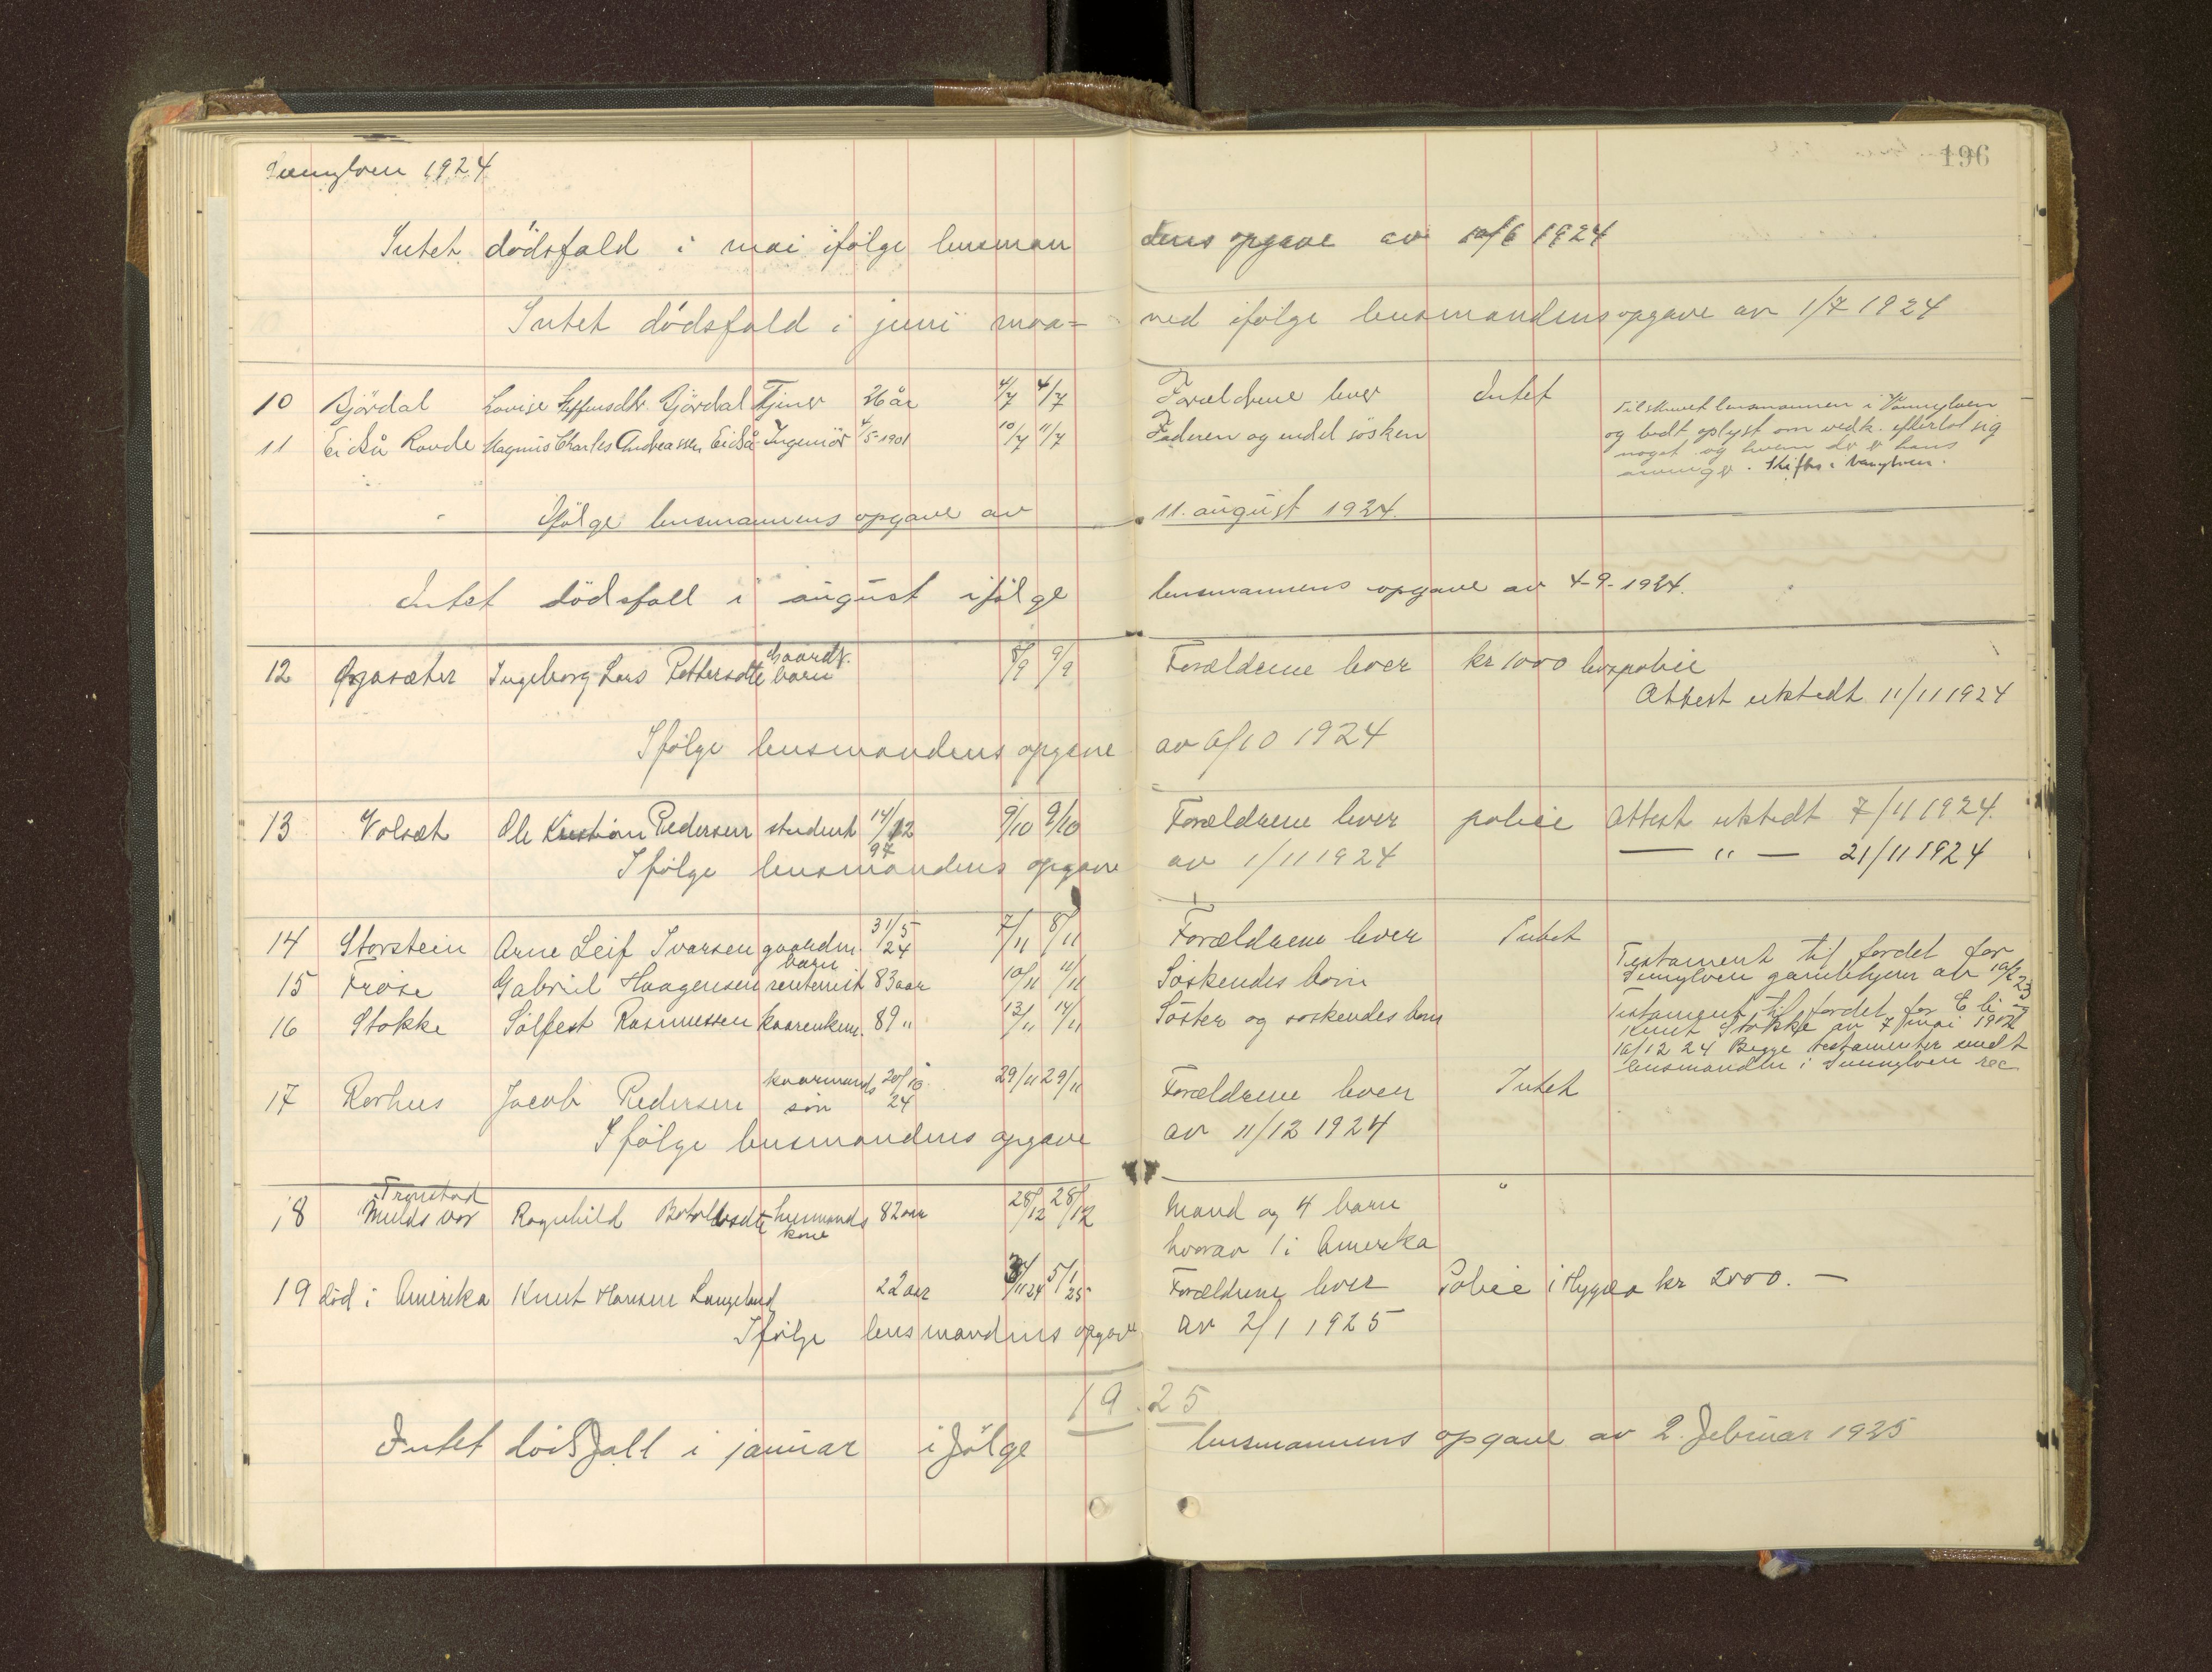 Sunnylven 1924
196
Intet dödsfald i mai ifölge lensman dens opgave av 10/6 1924
Intet dödsfald i juni maa= ned ifölge lensmandens opgave av 1/7 1924
10 Björdal Lovise Steffensdtr. Björdal Tjener 26 år 4/7 4/7 Forældrene lever Intet
11 Eidså Rovde Magnus Charles Andreassen Eidså Ingeniör 4/5-1901 10/7 11/7 Faderen og endel sösken
Tilskrevet lensmannen i Vannylven
og bedt oplyst om vedk. efterlot sig
noget og hvem der er hans
arvinger. Skiftes i Vanylven.
Ifölge lensmannens opgave av 11. august 1924.
Intet dödsfall i august ifölge lensmannens opgave av 4-9-1924.
12 Ingeborg Lars Pettersdtr gaardbr. barn 8/9 9/9 Forældrene lever kr 1000 livspolice
Attest utstedt 11/11 1924
Ifölge lensmandens opgave av 6/10 1924
13 Volset Ole Kristian Pedersen student 14/12 97 9/10 9/10 Forældrene lever police Attest utstedt 7/11 1924.
— " — 21/11 1924
Ifölge lensmandens opgave av 1/11 1924
14 Storstein Arne Leif Ivarsen gaardm. barn 31/5 24 7/11 8/11 Forældrene lever Intet
15 Frøise Gabriel Haagensen rentenist 83 aar 10/11 11/11 Söskendes barn
Testament til fordel for
Sunnylven gamlehjem av 10/2 23
16 Stokke Sölfest Rasmussen kaarenkem. 89 " 13/11 14/11 Söster og söskendes barn
Testament til fordel for E li og
Knut Stokke av 7 mai 1907
10/12 24 Begge testamenter sendt
lensmanden i Sunnylven rec
17 Rørhus Jacob Pedersen kaarmands sön 20/10 24 29/11 29/11 Forældrene lever Intet
Ifölge lensmandens opgave av 11/12 1924
18 Tronstad Mulds vor Ragnhild Botolfsdtr husmands kone 82 aar 28/12 28/12 Mand og 4 barn "
hvorav 1 i Amerika
19 död i Amerika Knut Hansen Langeland 22 aar 3/11 24 5/1 25 Forældrene lever Police i Hygea kr 2000. —
Ifölge lensmandens opgave av 2/1 1925
1925
Intet dödsfall i januar ifölge lensmannens opgave av 2. februar 1925